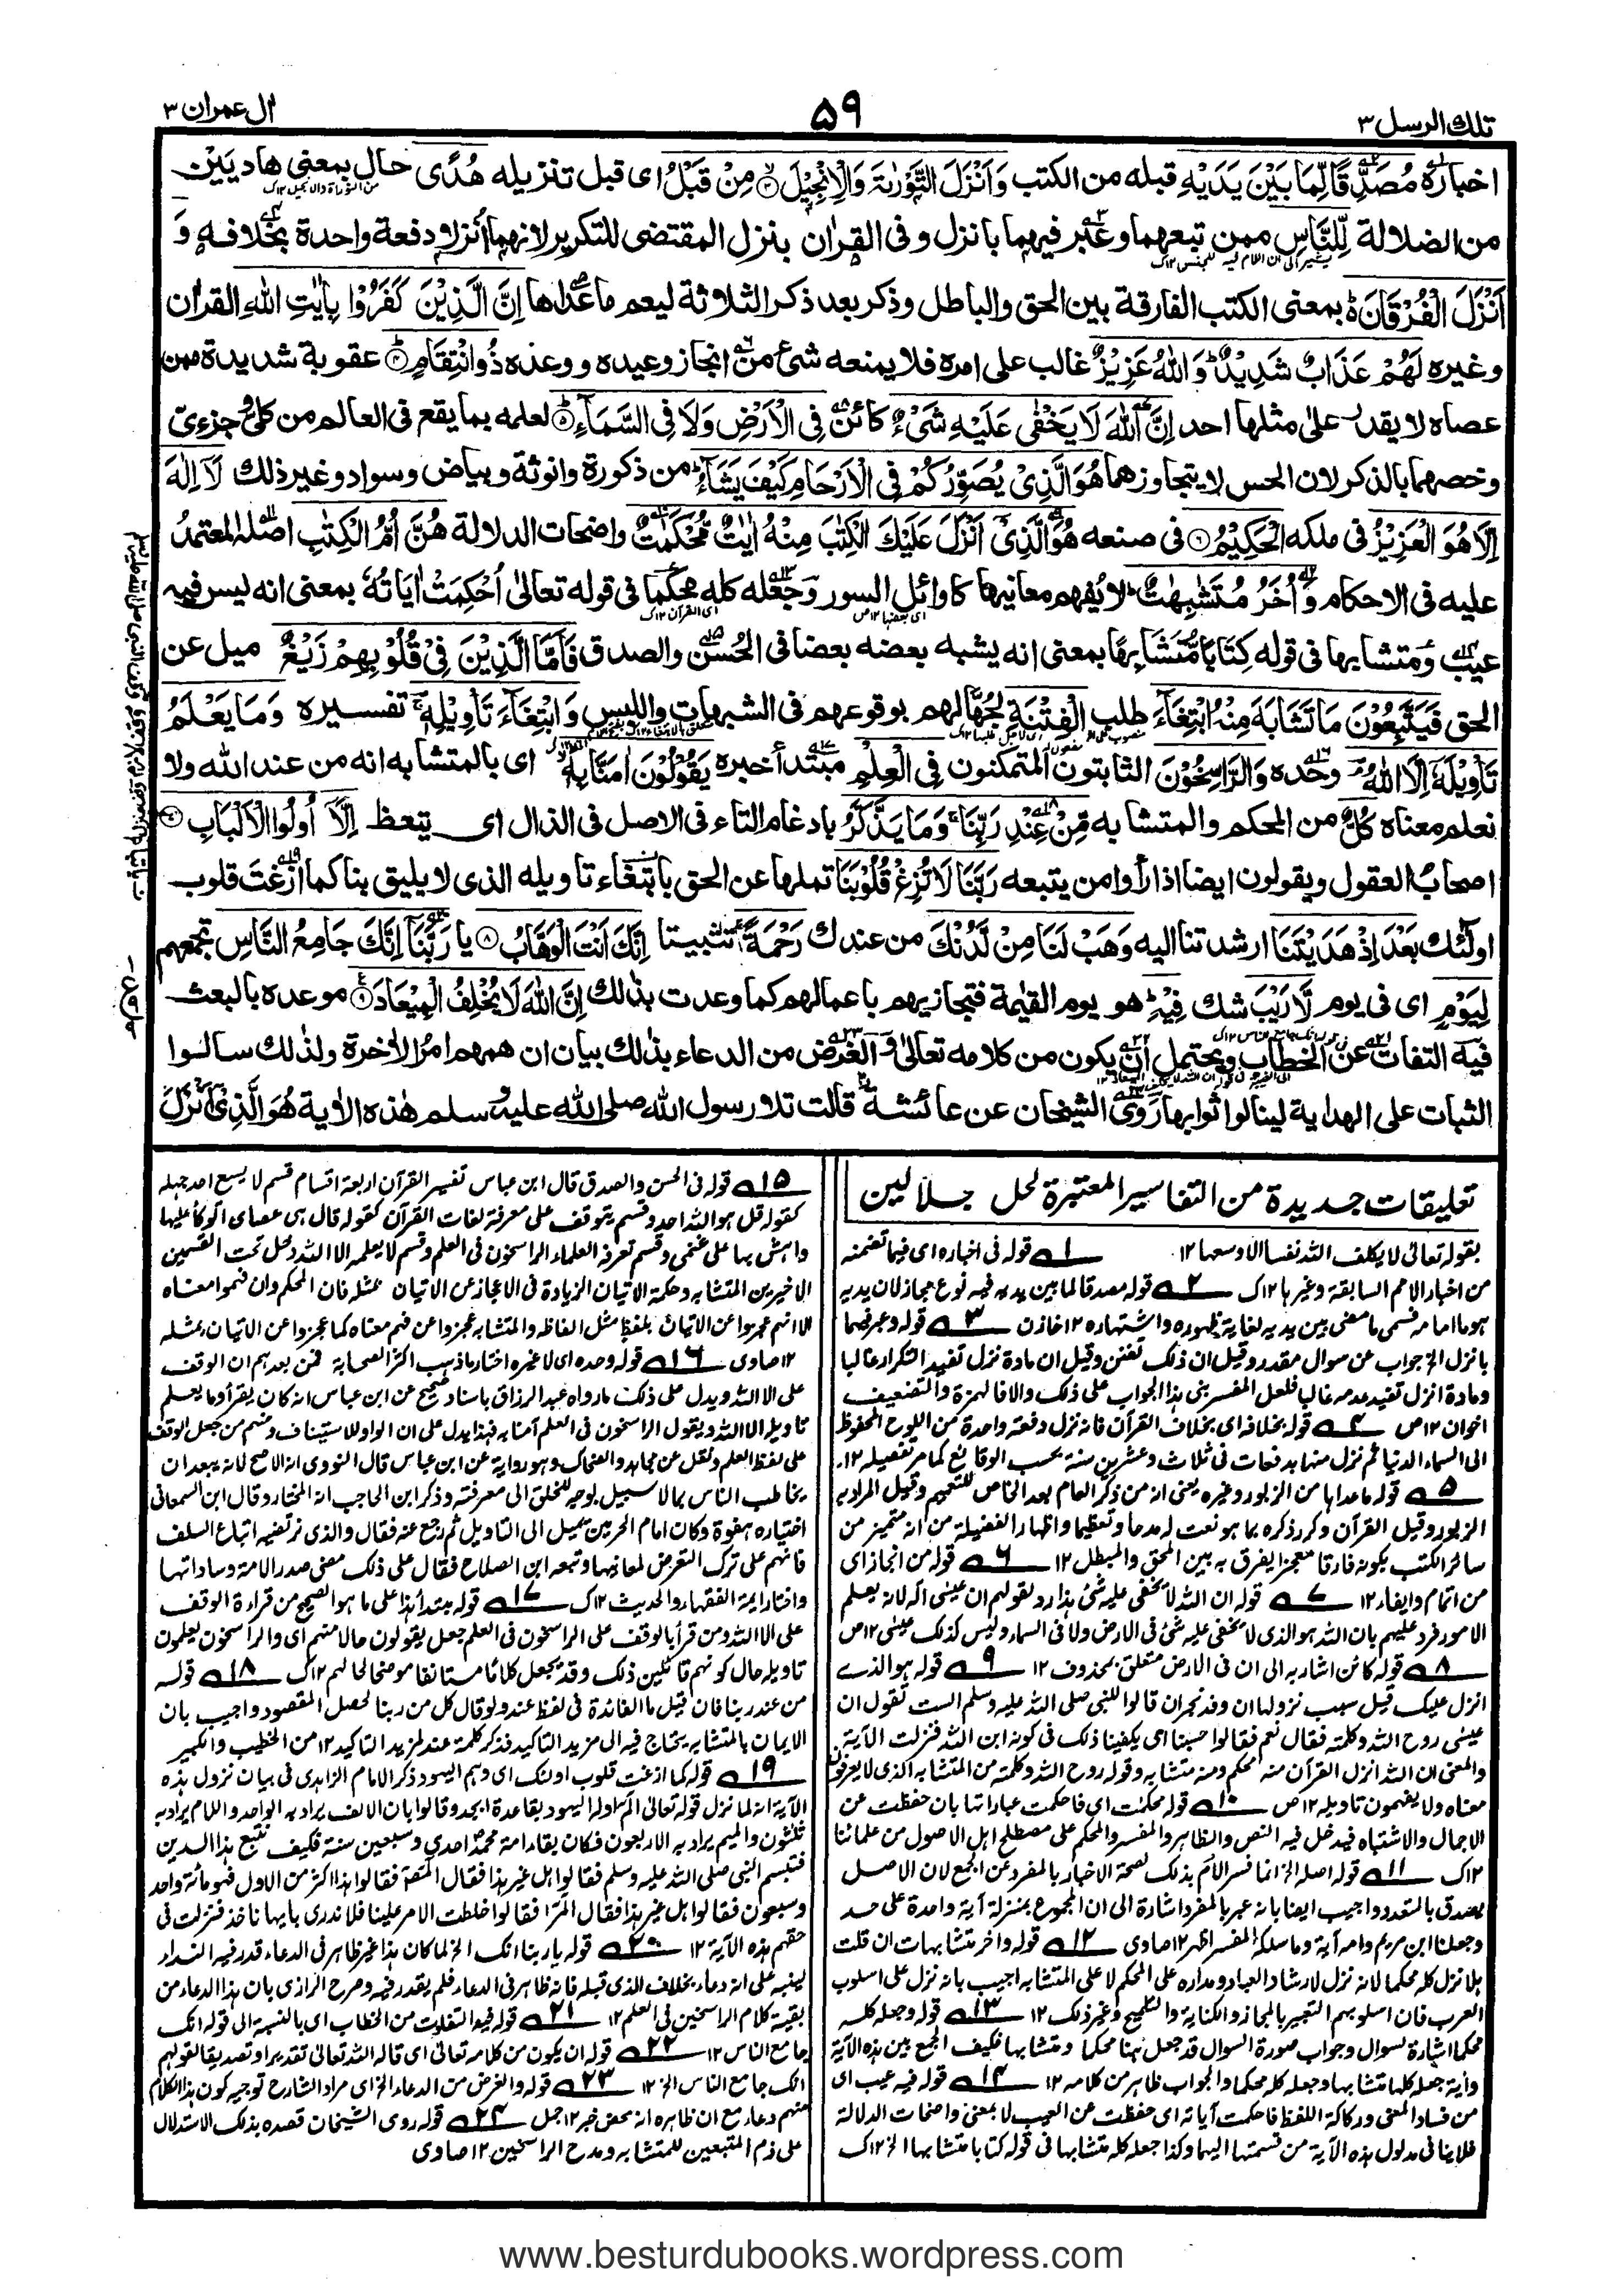 تلك الرسل ٣
٥٩
اٰل عمران ٣
اخباره مُصَدِّقًا لِّمَا بَيْنَ يَدَيْهِ قبله من الكتب وَاَنْزَلَ التَّوْرٰىةَ وَالْاِنْجِيْلَ ③ مِنْ قَبْلُ اى قبل تنزيله هُدًى حال بمعنى هاديَيْن
من الضلالة لِّلنَّاسِ ممن تبعهما وعَبّر فيهما بانزل وفى القرٰان بنزل المقتضى للتكرير لانهما اُنزلا دفعة واحدة بخلافه وَ
اَنْزَلَ الْفُرْقَانَ ؕ بمعنى الكتب الفارقة بين الحق والباطل وذكر بعد ذكر الثلاثة ليعم ماعداها اِنَّ الَّذِيْنَ كَفَرُوْا بِاٰيٰتِ اللهِ القراٰن
وغيره لَهُمْ عَذَابٌ شَدِيْدٌ ؕ وَاللهُ عَزِيْزٌ غالب على امره فلا يمنعه شئ من انجاز وعيده ووعده ذُو انْتِقَامٍ ④ عقوبة شديدة ممن
عصاه لا يقدر على مثلها احد اِنَّ اللهَ لَا يَخْفٰى عَلَيْهِ شَيْءٌ كائن فِى الْاَرْضِ وَلَا فِى السَّمَآءِ ⑤ لعلمه بما يقع فى العالم من كلىّ وجزءىّ
وخصهما بالذكر لان الحس لا يتجاوزهما هُوَ الَّذِىْ يُصَوِّرُكُمْ فِى الْاَرْحَامِ كَيْفَ يَشَآءُ من ذكورة وانوثة وبياض وسواد وغير ذلك لَآ اِلٰهَ
اِلَّا هُوَ الْعَزِيْزُ فى ملكه الْحَكِيْمُ ⑥ فى صنعه هُوَ الَّذِىْٓ اَنْزَلَ عَلَيْكَ الْكِتٰبَ مِنْهُ اٰيٰتٌ مُّحْكَمٰتٌ واضحات الدلالة هُنَّ اُمُّ الْكِتٰبِ اصله المعتمدُ
عليه فى الاحكام وَاُخَرُ مُتَشٰبِهٰتٌ لا يُفهم معانيها كاوائل السور وجَعْله كله محكما فى قوله تعالىٰ اُحْكِمَتْ اٰيَاتُهٗ بمعنى انه ليس فيه
عيب ومُتشابها فى قوله كِتَابًا مُّتَشَابِهًا بمعنى انه يشبه بعضه بعضا فى الحُسن والصدق فَاَمَّا الَّذِيْنَ فِىْ قُلُوْبِهِمْ زَيْغٌ ميل عن
الحق فَيَتَّبِعُوْنَ مَا تَشَابَهَ مِنْهُ ابْتِغَآءَ طلب الْفِتْنَةِ لجُهّالهم بوقوعهم فى الشبهات واللبس وَابْتِغَآءَ تَاْوِيْلِهٖ تفسيره وَمَا يَعْلَمُ
تَاْوِيْلَهٗٓ اِلَّا اللهُ وحده وَالرَّاسِخُوْنَ الثابتون المتمكنون فِى الْعِلْمِ مبتدأ خبره يَقُوْلُوْنَ اٰمَنَّا بِهٖ اى بالمتشابه انه من عند الله ولا
نعلم معناه كُلٌّ من المحكم والمتشابه مِّنْ عِنْدِ رَبِّنَا وَمَا يَذَّكَّرُ بادغام التاء فى الاصل فى الذال اى يتعظ اِلَّآ اُولُوا الْاَلْبَابِ ⑦
اصحابُ العقول ويقولون ايضا اذا رأوا من يتبعه رَبَّنَا لَا تُزِغْ قُلُوْبَنَا تملها عن الحق بابتغاء تاويله الذى لا يليق بنا كما ازغتَ قلوب
اولٰئك بَعْدَ اِذْ هَدَيْتَنَا ارشدتنا اليه وَهَبْ لَنَا مِنْ لَّدُنْكَ من عندك رَحْمَةً تثبيتا اِنَّكَ اَنْتَ الْوَهَّابُ ⑧ يا رَبَّنَآ اِنَّكَ جَامِعُ النَّاسِ تجمعهم
لِيَوْمٍ اى فى يوم لَّا رَيْبَ شك فِيْهِ هو يوم القيٰمة فتجازيهم باعمالهم كما وعدت بذلك اِنَّ اللهَ لَا يُخْلِفُ الْمِيْعَادَ ⑨ موعده بالبعث
فيه التفات عن الخطاب ويحتمل ان يكون من كلامه تعالىٰ والغرض من الدعاء بذلك بيان ان همهم امرُ الاٰخرة ولذلك سالُوا
الثبات على الهداية لينالوا ثوابها روى الشيخان عن عائشة قالت تلا رسول الله صلى الله عليه وسلم هٰذه الاٰية هُوَ الَّذِىْٓ اَنْزَلَ
تعليقات جديدة من التفاسير المعتبرة لحل جلالين
بقوله تعالىٰ لا يكلف الله نفسا الا وسعها ١٢. ١ قوله فى اخباره اى فيما تضمنه
من اخبار الامم السابقة وغيرها ١٢ك ٢ قوله مصدقا لما بين يديه فيه نوع مجاز لان يديه
هو ما امامه فسمى ما مضى بين يديه لغاية ظهوره واشتهاره ١٢ خازن ٣ قوله وعبر فيهما
بانزل الخ جواب عن سوال مقدر وقيل ان ذلك تفنن وقيل ان مادة نزل تفيد التكرار غالبا
ومادة انزل تفيد عدمه غالبا فلعل المفسر بنى هذا الجواب على ذلك والا فالهمزة والتضعيف
اخوان ١٢ص ٤ قوله بخلافه اى بخلاف القرآن فانه نزل دفعة واحدة من اللوح المحفوظ
الى السماء الدنيا ثم نزل منها بدفعات فى ثلاث وعشرين سنة بحسب الوقائع كما مر تفصيله ١٢.
٥ قوله ماعداها من الزبور وغيره يعنى انه من ذكر العام بعد الخاص للتعميم وقيل المراد به
الزبور وقيل القرآن وكرر ذكره بما هو نعت له مدحا وتعظيما واظهارا لفضيلة من انه متميز من
سائر الكتب بكونه فارقا معجزا يفرق به بين المحق والمبطل ١٢ ٦ قوله من انجاز اى
من اتمام وايفاء ١٢ ٧ قوله ان الله لا يخفى عليه شئ هذا رد لقولهم ان عيسى اله لانه يعلم
الامور فرد عليهم بان الله هو الذى لا يخفى عليه شئ فى الارض ولا فى السماء وليس كذلك عيسى ١٢ص
٨ قوله كائن اشار به الى ان فى الارض متعلق بمحذوف ١٢ ٩ قوله هو الذے
انزل عليك قيل سبب نزولها ان وفد نجران قالوا للنبى صلى الله عليه وسلم الست تقول ان
عيسى روح الله وكلمته فقال نعم فقالوا حسبنا اى يكفينا ذلك فى كونه ابن الله فنزلت الآية.
والمعنى ان الله انزل القرآن منه محكم ومنه متشابه وقوله روح الله وكلمته من المتشابه الذى لا يعرفون
معناه ولا يفهمون تاويله ١٢ص ١٠ قوله محكمٰت اى فاحكمت عباراتها بان حفظت عن
الاجمال والاشتباه فيدخل فيه النص والظاهر والمفسر والمحكم على مصطلح اهل الاصول من علمائنا
١٢ك ١١ قوله اصله الخ انما فسر الام بذلك لصحة الاخبار بالمفرد عن الجمع لان الاصل
يصدق بالمتعدد واجيب ايضا بانه عبر بالمفرد اشارة الى ان المجموع بمنزلة آية واحدة على حد
وجعلنا ابن مريم وامه آية وما سلكه المفسر اظهر ١٢ صاوى ١٢ قوله واخر متشابهات ان قلت
هلا نزل كله محكما لانه نزل لارشاد العباد ومداره على المحكم لا على المتشابه اجيب بانه نزل على اسلوب
العرب فان اسلوبهم التعبير بالمجاز والكناية والتلميح وغير ذلك ١٢ ١٣ قوله وجعله كله
محكما اشارة لسوال وجواب صورة السوال قد جعل هنا محكما ومتشابها فكيف الجمع بين هذه الآية
وآية جعل كلها متشابها وجعله كله محكما والجواب ظاهر من كلامه ١٢ ١٤ قوله فيه عيب اى
من فساد المعنى وركاكة اللفظ فاحكمت آياته اى حفظت عن العيب لا بمعنى واضحات الدلالة
فلا ينافى مدلول هذه الآية من قسمتها اليهما وكذا جعله كله متشابها فى قوله كتابا متشابها الخ ١٢ك
١٥ قوله فى الحسن والصدق قال ابن عباس تفسير القرآن اربعة اقسام قسم لا يسع احد جهله
كقوله قل هو الله احد وقسم يتوقف على معرفة لغات القرآن كقوله قال هى عصاى اتوكأ عليها
واهش بها على غنمى وقسم تعرفه العلماء الراسخون فى العلم وقسم لا يعلمه الا الله ودخل تحت القسمين
الاخيرين المتشابه وحكمة الاتيان الزيادة فى الاعجاز عن الاتيان بمثله فان المحكم وان فهموا معناه
الا انهم عجزوا عن الاتيان بلفظ مثل الفاظه والمتشابه عجزوا عن فهم معناه كما عجزوا عن الاتيان بمثله
١٢ صاوى ١٦ قوله وحده اى لا غيره اختار ما ذهب اكثر الصحابة فمن بعدهم ان الوقف
على الا الله ويدل على ذلك ما رواه عبد الرزاق باسناد صحيح عن ابن عباس انه كان يقرأ وما يعلم
تاويله الا الله ويقول الراسخون فى العلم آمنا به فهذا يدل على ان الواو للاستيناف ومنهم من جعل الوقف
على لفظ العلم ونقل عن مجاهد والضحاك وهو رواية عن ابن عباس قال النووى انه الاصح لانه يبعد ان
يخاطب الناس بما لا سبيل بوجه للخلق الى معرفته وذكر ابن الحاجب انه المختار وقال ابن السمعانى
اختياره هفوة وكان امام الحرمين يميل الى التاويل ثم رجع عنه فقال والذى نرتضيه اتباع السلف
فانهم على ترك التعرض لمعانيها وتبعه ابن الصلاح فقال على ذلك مضى صدر الامة وساداتها
واختار ايمة الفقهاء والحديث ١٢ك ١٧ قوله مبتدأ هذا على ما هو الصحيح من قراءة الوقف
على الا الله ومن قرأ بالوقف على الراسخون فى العلم جعل يقولون حالا منهم اى والراسخون يعلمون
تاويله حال كونهم قائلين ذلك وقد يجعل كلاما مستانفا موضحا لحالهم ١٢ك ١٨ قوله
من عند ربنا فان قيل ما الفائدة فى لفظ عند ولو قال كل من ربنا لحصل المقصود واجيب بان
الايمان بالمتشابه يحتاج فيه الى مزيد التاكيد فذكر كلمة عند لمزيد التاكيد ١٢ من الخطيب والكبير
١٩ قوله كما ازغت قلوب اولئك اى وهم اليهود ذكر الامام الزاهدى فى بيان نزول هذه
الآية انه لما نزل قوله تعالى الٓمٓ اولها اليهود بقاعدة ابجد وقالوا بان الالف يراد به الواحد واللام يراد به
ثلثون والميم يراد به الاربعون فكان بقاء امة محمدؐ احدى وسبعين سنة فكيف نتبع هذا الدين
فتبسم النبى صلى الله عليه وسلم فقالوا هل غير هذا فقال المٓصٓ فقالوا هذا اكثر من الاول فهو مائة واحد
وسبعون فقالوا هل غير هذا فقال المٓرٰ فقالوا خلطت الامر علينا فلا ندرى بايها ناخذ فنزلت فى
حقهم هذه الآية ١٢ ٢٠ قوله يا ربنا انك الخ لما كان هذا غير ظاهر فى الدعاء قدر فيه النداء
لينبه على انه دعاء بخلاف الذى قبله فانه ظاهر فى الدعاء فلم يقدر فيه وصرح الرازى بان هذا الدعاء من
بقية كلام الراسخين فى العلم ١٢ ٢١ قوله فيه التفات من الخطاب اى بالنسبة الى قوله انك
جامع الناس ١٢ ٢٢ قوله ان يكون من كلامه تعالى اى قاله الله تعالى تقديرا وتصديقا لقولهم
انك جامع الناس الخ ١٢ ٢٣ قوله والغرض من الدعاء الخ اى مراد الشارح توجيه كون هذا الكلام
منهم دعاء مع ان ظاهره انه محض خبر ١٢ جمل ٢٤ قوله روى الشيخان قصده بذلك الاستدلال
على ذم المتبعين للمتشابه ومدح الراسخين ١٢ صاوى
www.besturdubooks.wordpress.com